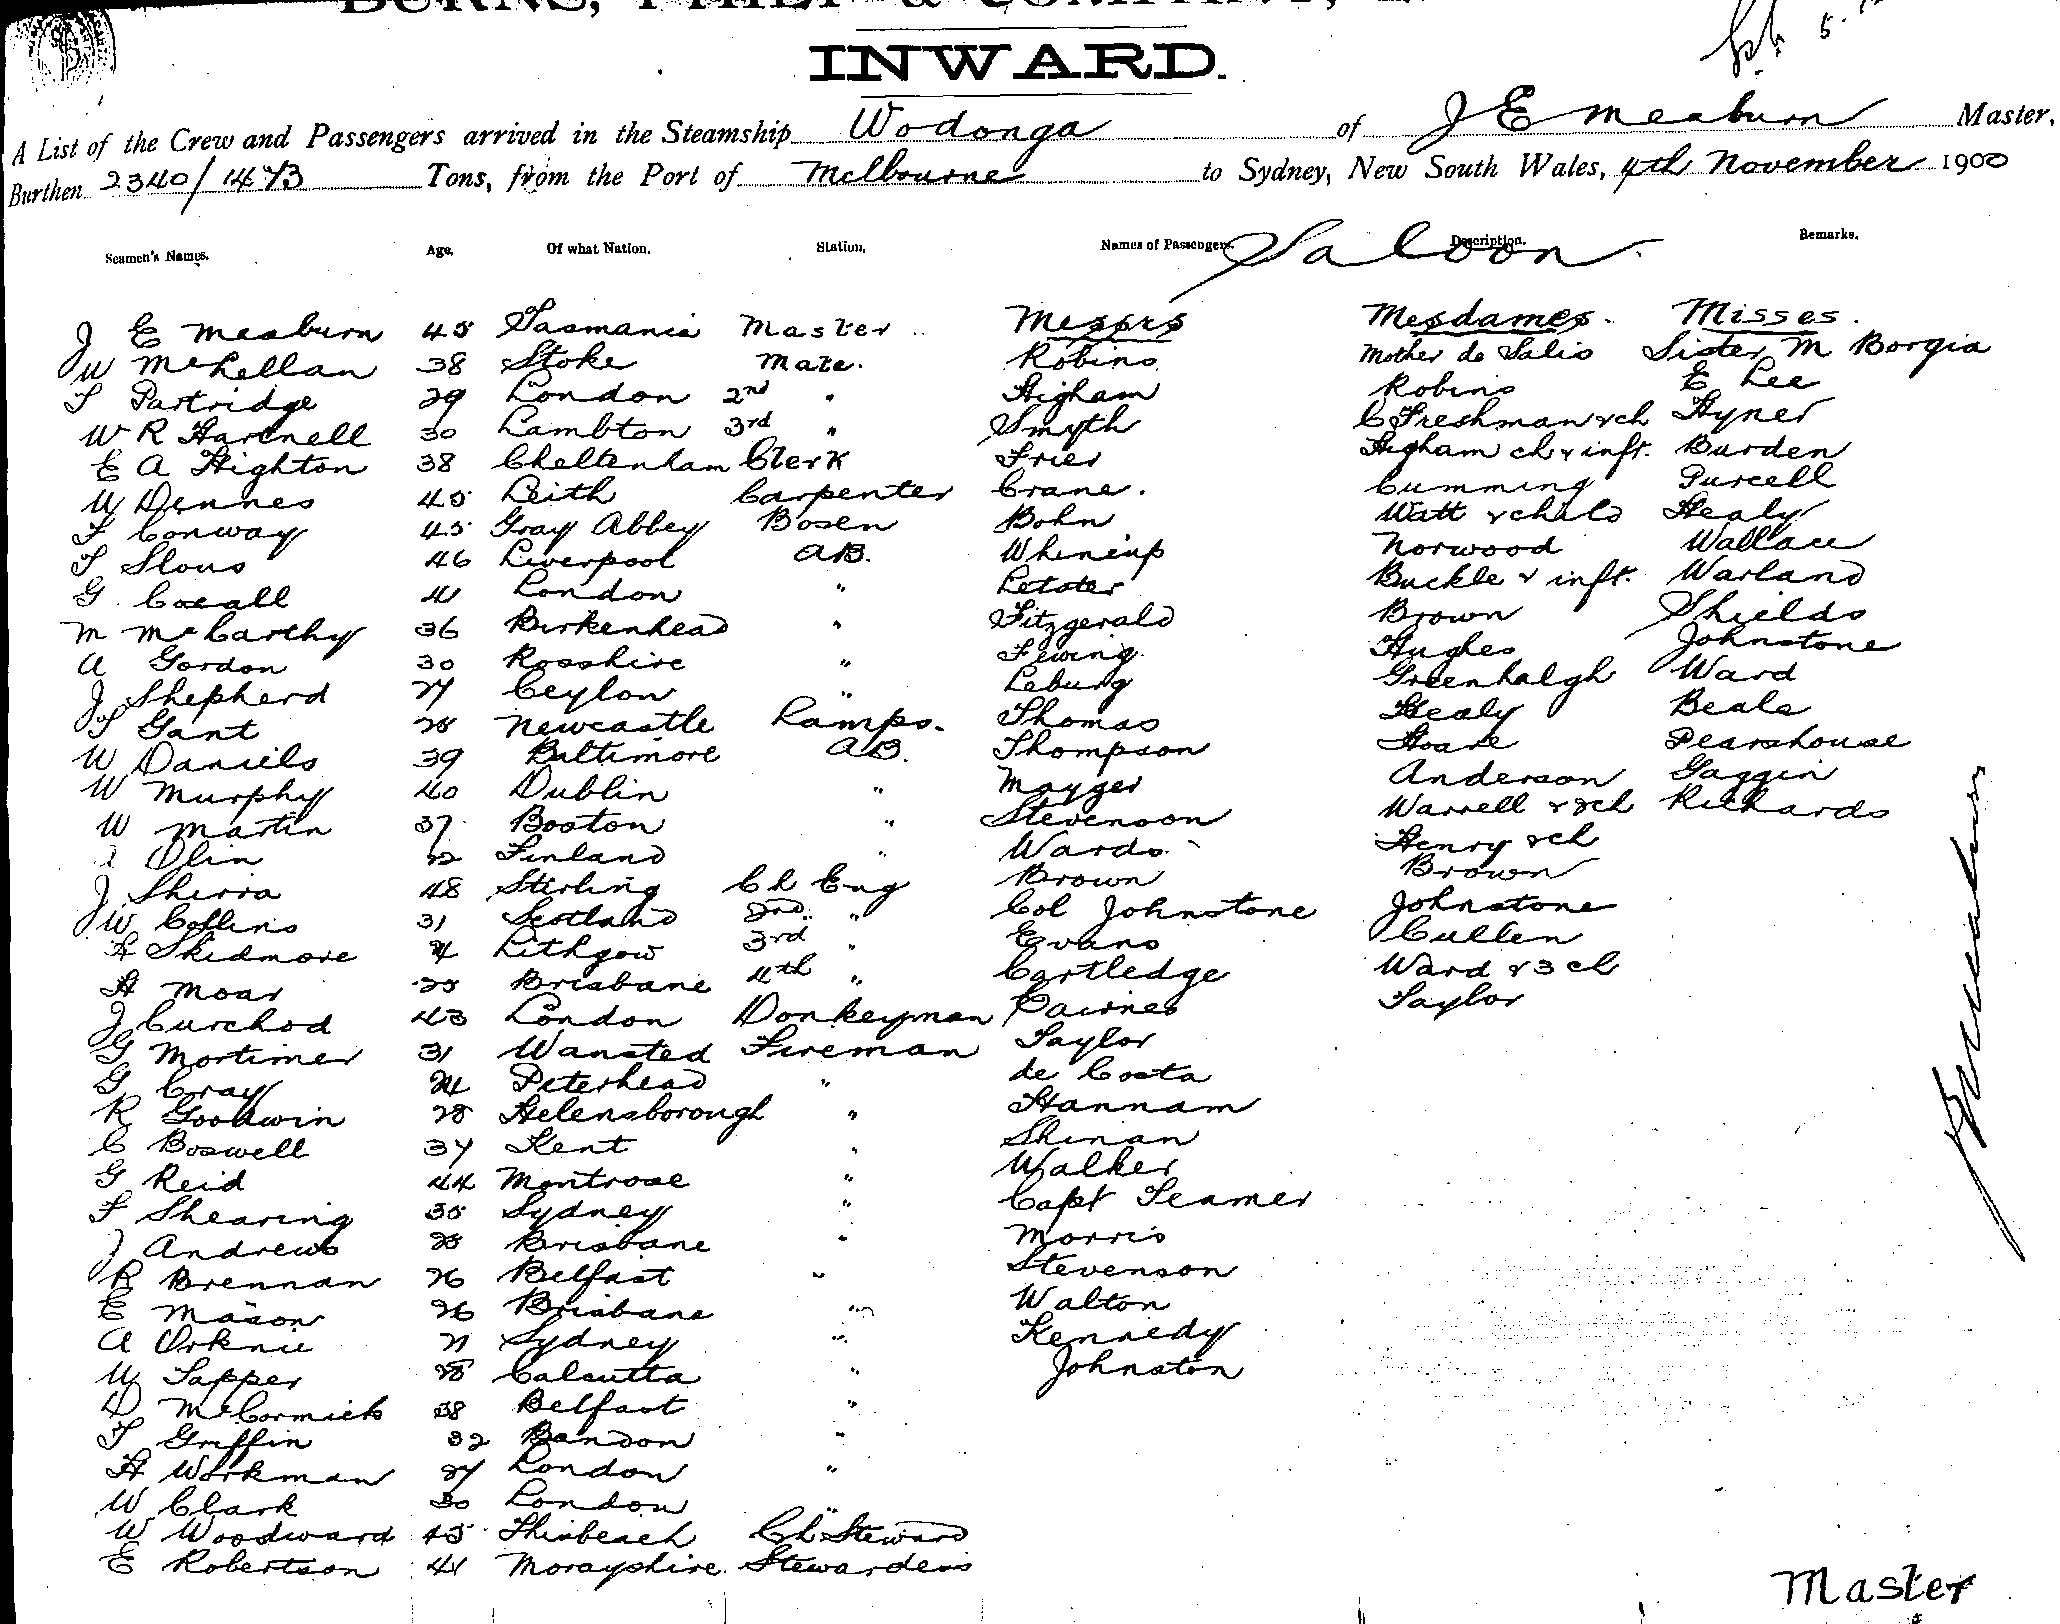 INWARD.
A List of the Crew and Passengers arrived in the Steamship Wodonga of J E Meaburn Master,
Burthen 2340/1473 Tons, from the Port of Melbourne to Sydney, New South Wales, 4th November 1900
Seamen's Names. Age. Of what Nation. Station. Names of Passengers. Description. Remarks.
Saloon.
J E Meaburn 45 Tasmania Master Messrs Mesdames. Misses.
W McLellan 38 Stoke Mate. Robins Mother de Salis Sister M Borgia
T Partridge 29 London 2nd " Higham Robins E Lee
W R Hartnell 30 Lambton 3rd " Smyth C Freshman & ch Hyner
E A Highton 38 Cheltenham Clerk Frier Higham ch & inft. Burden
W Dennes 45 Leith Carpenter Crane. Cumming Purcell
F Conway 45 Gray Abbey Bosen Bohn Watt & child Healy
T Slous 46 Liverpool AB. Whineup Norwood Wallace
G 41 London " Letster Buckle & inft. Warland
M McCarthy 36 Birkenhead " Fitzgerald Brown Shields
A Gordon 30 Rosshire " Fewing Hughes Johnstone
J Shepherd 27 Ceylon " Leburg Greenhalgh Ward
T Gant 28 Newcastle Lamps. Thomas Healy Beale
W Daniels 39 Baltimore AB. Thompson Hoare Pearshouse
W Murphy 40 Dublin " Mayger Anderson Gaggin
W Martin 37 Boston " Stevenson Warrell & 2ch Richards
Olin 22 Finland " Wards Henry & ch
J Sherra 48 Stirling Ch Eng Brown Brown
J W Collins 31 Scotland 2nd. " Col Johnstone Johnstone
H Skidmore 24 Lithgow 3rd " Evans Cullen
H Moar 25 Brisbane 4th " Cartledge Ward & 3 ch
J Curchod 43 London Donkeyman Cairnes Taylor
G Mortimer 31 Wansted Fireman Taylor
G Cray 24 Peterhead " de Costa
R Goodwin 28 Helensborough " Hannam
C Boswell 34 Kent " Shinan
G Reid 44 Montrose " Walker
F Shearing 35 Sydney " Capt Seamer
J Andrews 28 Brisbane " Morris
R Brennan 26 Belfast " Stevenson
E Mason 26 Brisbane " Walton
A Orknie 21 Sydney " Kennedy
W Tapper 28 Calcutta " Johnston
D McCormick 38 Belfast "
T Griffin 32 Bandon "
H Workman 27 London "
W Clark 30 London "
W Woodward 45 Ch Steward
E Robertson 41 Morayshire Stewardess
Master